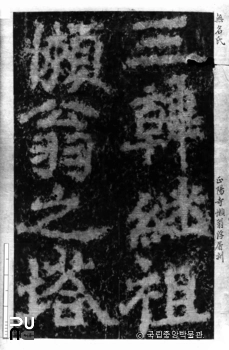 無名氏
正陽寺懶翁浮屠刻
三韓継祖
懶翁之塔
PU
국립중앙박물관